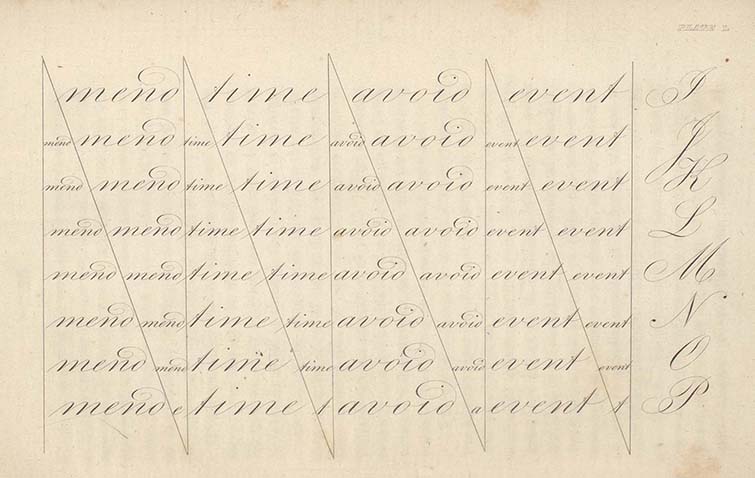 PLATE L
mend time avoid event I
mend mend time time avoid avoid event event J
mend mend time time avoid avoid event event K
mend mend time time avoid avoid event event L
mend mend time time avoid avoid event event M
mend mend time time avoid avoid event event N
mend mend time time avoid avoid event event O
mend e time t avoid a event t P